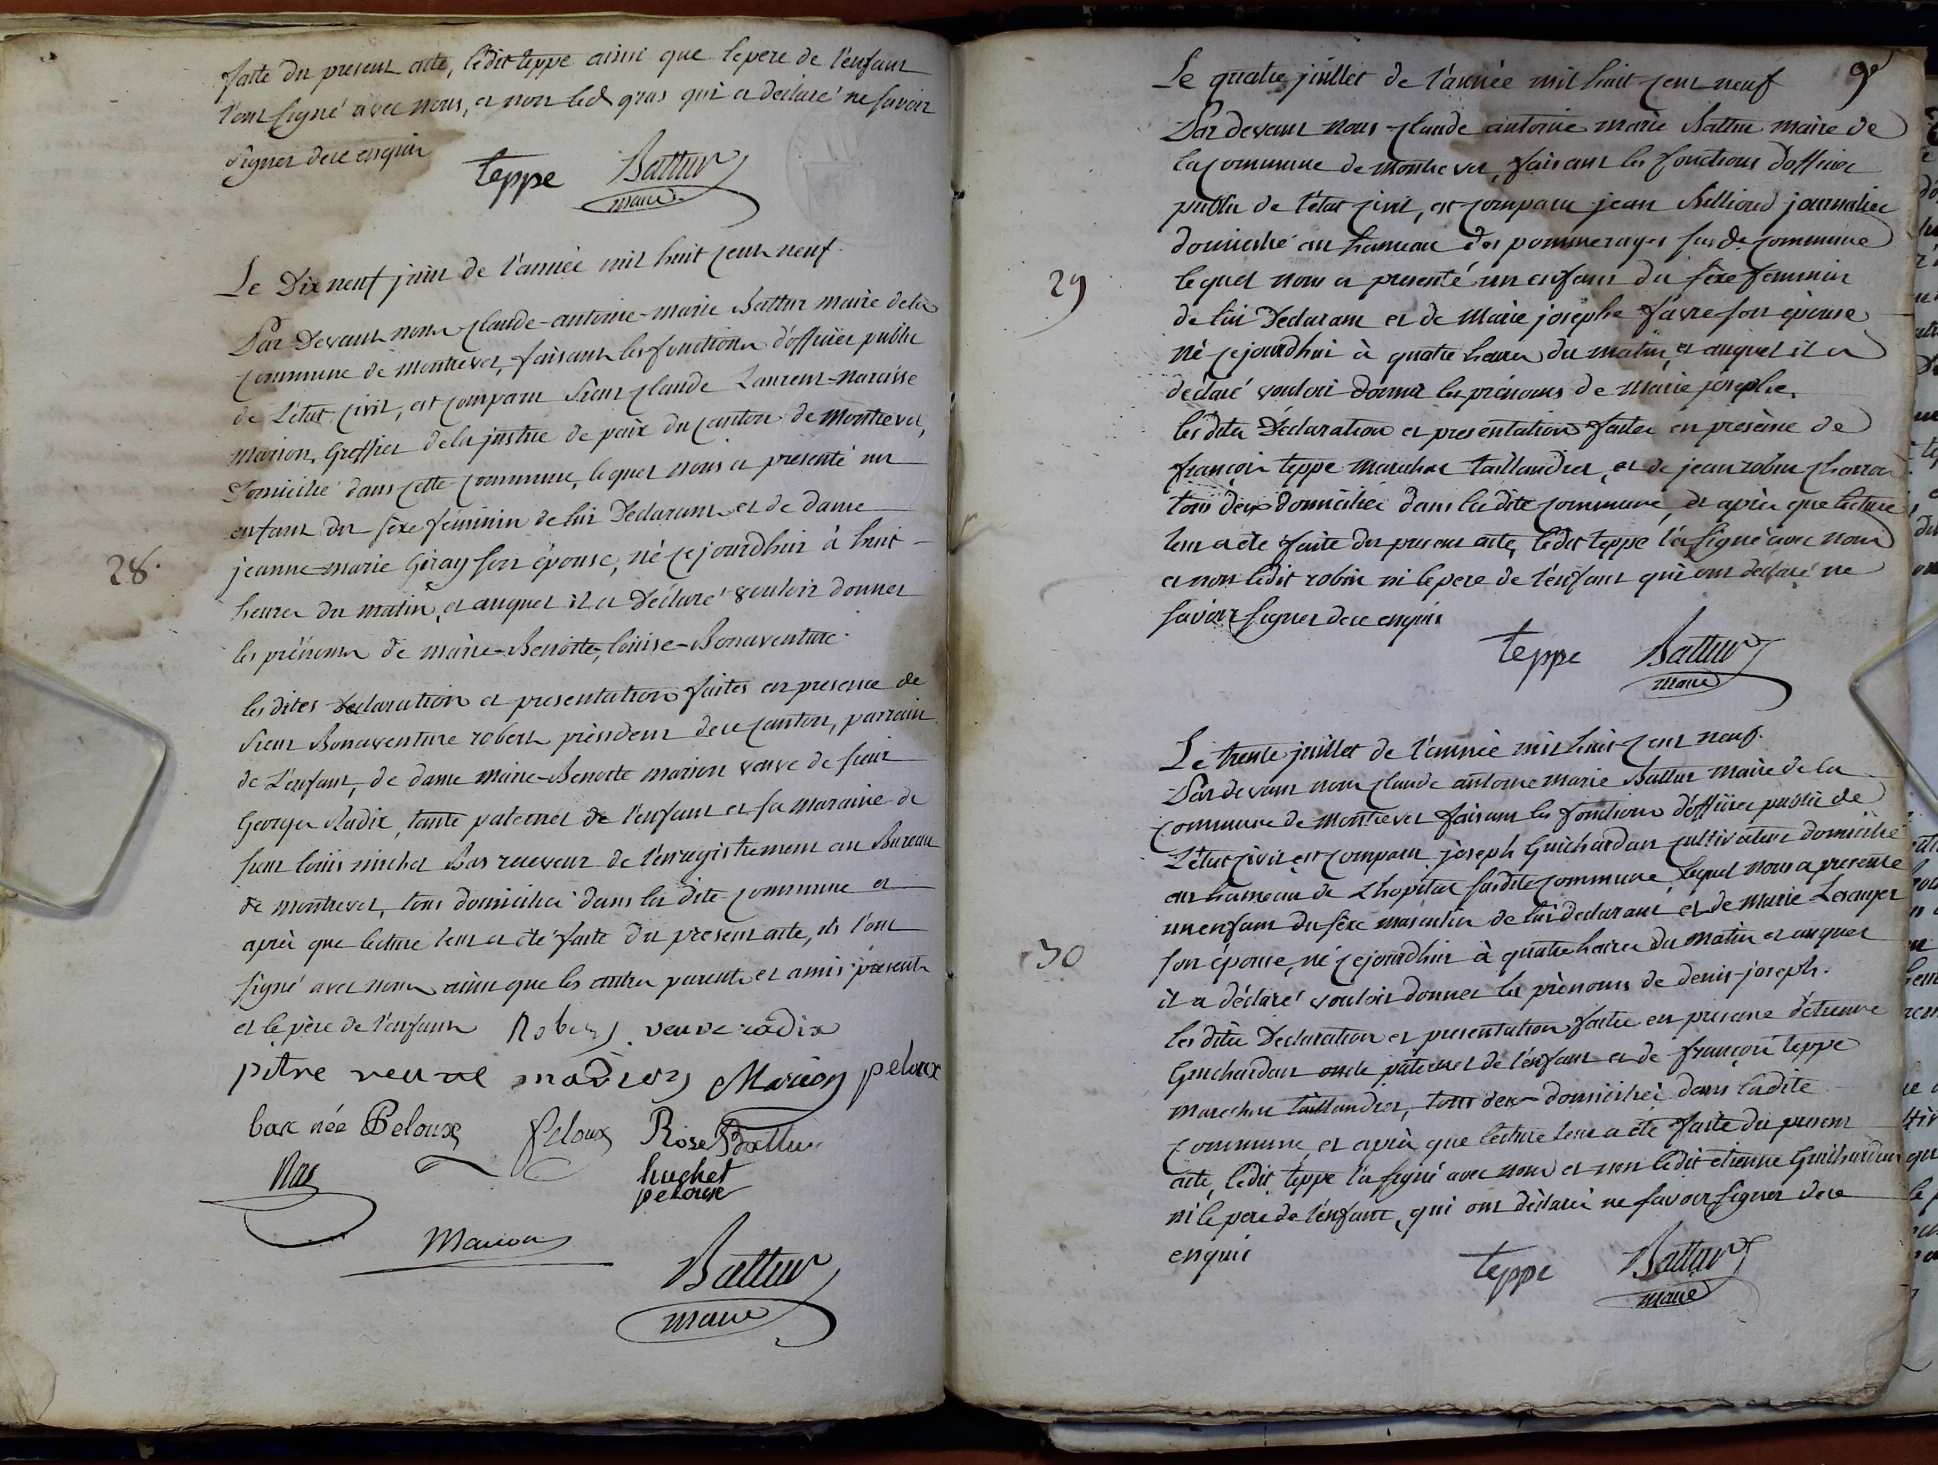 faite du present acte, ledit teppe ainsi que le pere de l'enfant
l'ont signé avec nous, et non led. gras qui a déclaré ne savoir
signer de ce enquis
teppe Battur
maire
Le Dix neuf juin de l'année mil huit cent neuf.
Par Devant nous Claude-antoine-marie Battur maire de la
commune de montrevel, faisant les fonctions d'officier public
de L'état civil, est comparu Sieur Claude Laurent-narcisse
marion, Greffier de la justice de paix du canton de montrevel,
Domicilié dans cette commune, lequel nous a presenté un
enfant du sexe féminin de lui Déclarant et de dame
28.
jeanne-marie Géray son épouse, né cejourdhui à huit
heures du matin, et auquel il a Déclaré vouloir donner
les prénoms de marie-Benoitte, louise-Bonaventure.
les dites declaration et presentation faites en presence de
Sieur Bonaventure robert président de ce canton, parrain
de L'enfant, de dame marie-Benoite marion veuve de sieur
George Radix, tante paternel de l'enfant et sa maraine de
sieur louis michel Bas receveur de l'enregistrement au Bureau
de montrevel, tous domiciliés dans la dite commune et
après que lecture leur a été faite du present acte, ils l'ont
signé avec nous ainsi que les autres parents et amis present
et le père de l'enfant Robert veuve radix
pitre veuve marion Marion peloux
bax née Peloux peloux Rose Battur
Bas
huchet
peloux
Marion
Battur
maire
Le quatre juillet de l'année mil huit cent neuf
Par devant nous Claude antoine marie Battur maire de
la commune de Montrevel, faisant les fonctions d'officier
public de l'état civil, est comparu jean Billioud journalier
domicilié au hameau des pommerayes susde. commune
29
lequel nous a presenté un enfant du sexe féminin
de lui Déclarant et de Marie josephe favre son épouse
né cejourdhui à quatre heures du matin, et auquel il a
déclaré vouloir donner les prénoms de marie josephe.
les dites Déclaration et presentation faites en presence de
françois teppe marechal taillandier, et de jean robin charron
tous deux domiciliés dans la dite commune, et après que lecture
leur a été faite du present acte, ledit teppe l'a signé avec nous
et non ledit robin ni le pere de l'enfant qui ont déclaré ne
savoir signer de ce enquis
teppe Battur
maire
Le trente juillet de l'année mil huit cent neuf.
Par devant nous Claude antoine marie Battur maire de la
commune de montrevel faisant les fonctions d'officier public de
L'état civil est comparu joseph Guichardan cultivateur domicilié
au hameau de L'hopital susdite commune, lequel nous a presenté
un enfant du sexe masculin de lui declarant et de marie Lescuyer
30
son épouse, né cejourdhui à quatre heures du matin et auquel
il a déclaré vouloir donner les prénoms de denis-joseph.
les dites Déclaration et presentation faites en presence d'étienne
Guichardan oncle paternel de l'enfant et de françois teppe
marechal taillandier, tous deux domiciliés dans ladite
commune, et après que lecture leur a été faite du present
acte, ledit teppe l'a signé avec nous et non ledit etienne Guichardan
ni le pere de l'enfant, qui ont déclaré ne savoir signer de ce
enquis
teppe Battur
maire